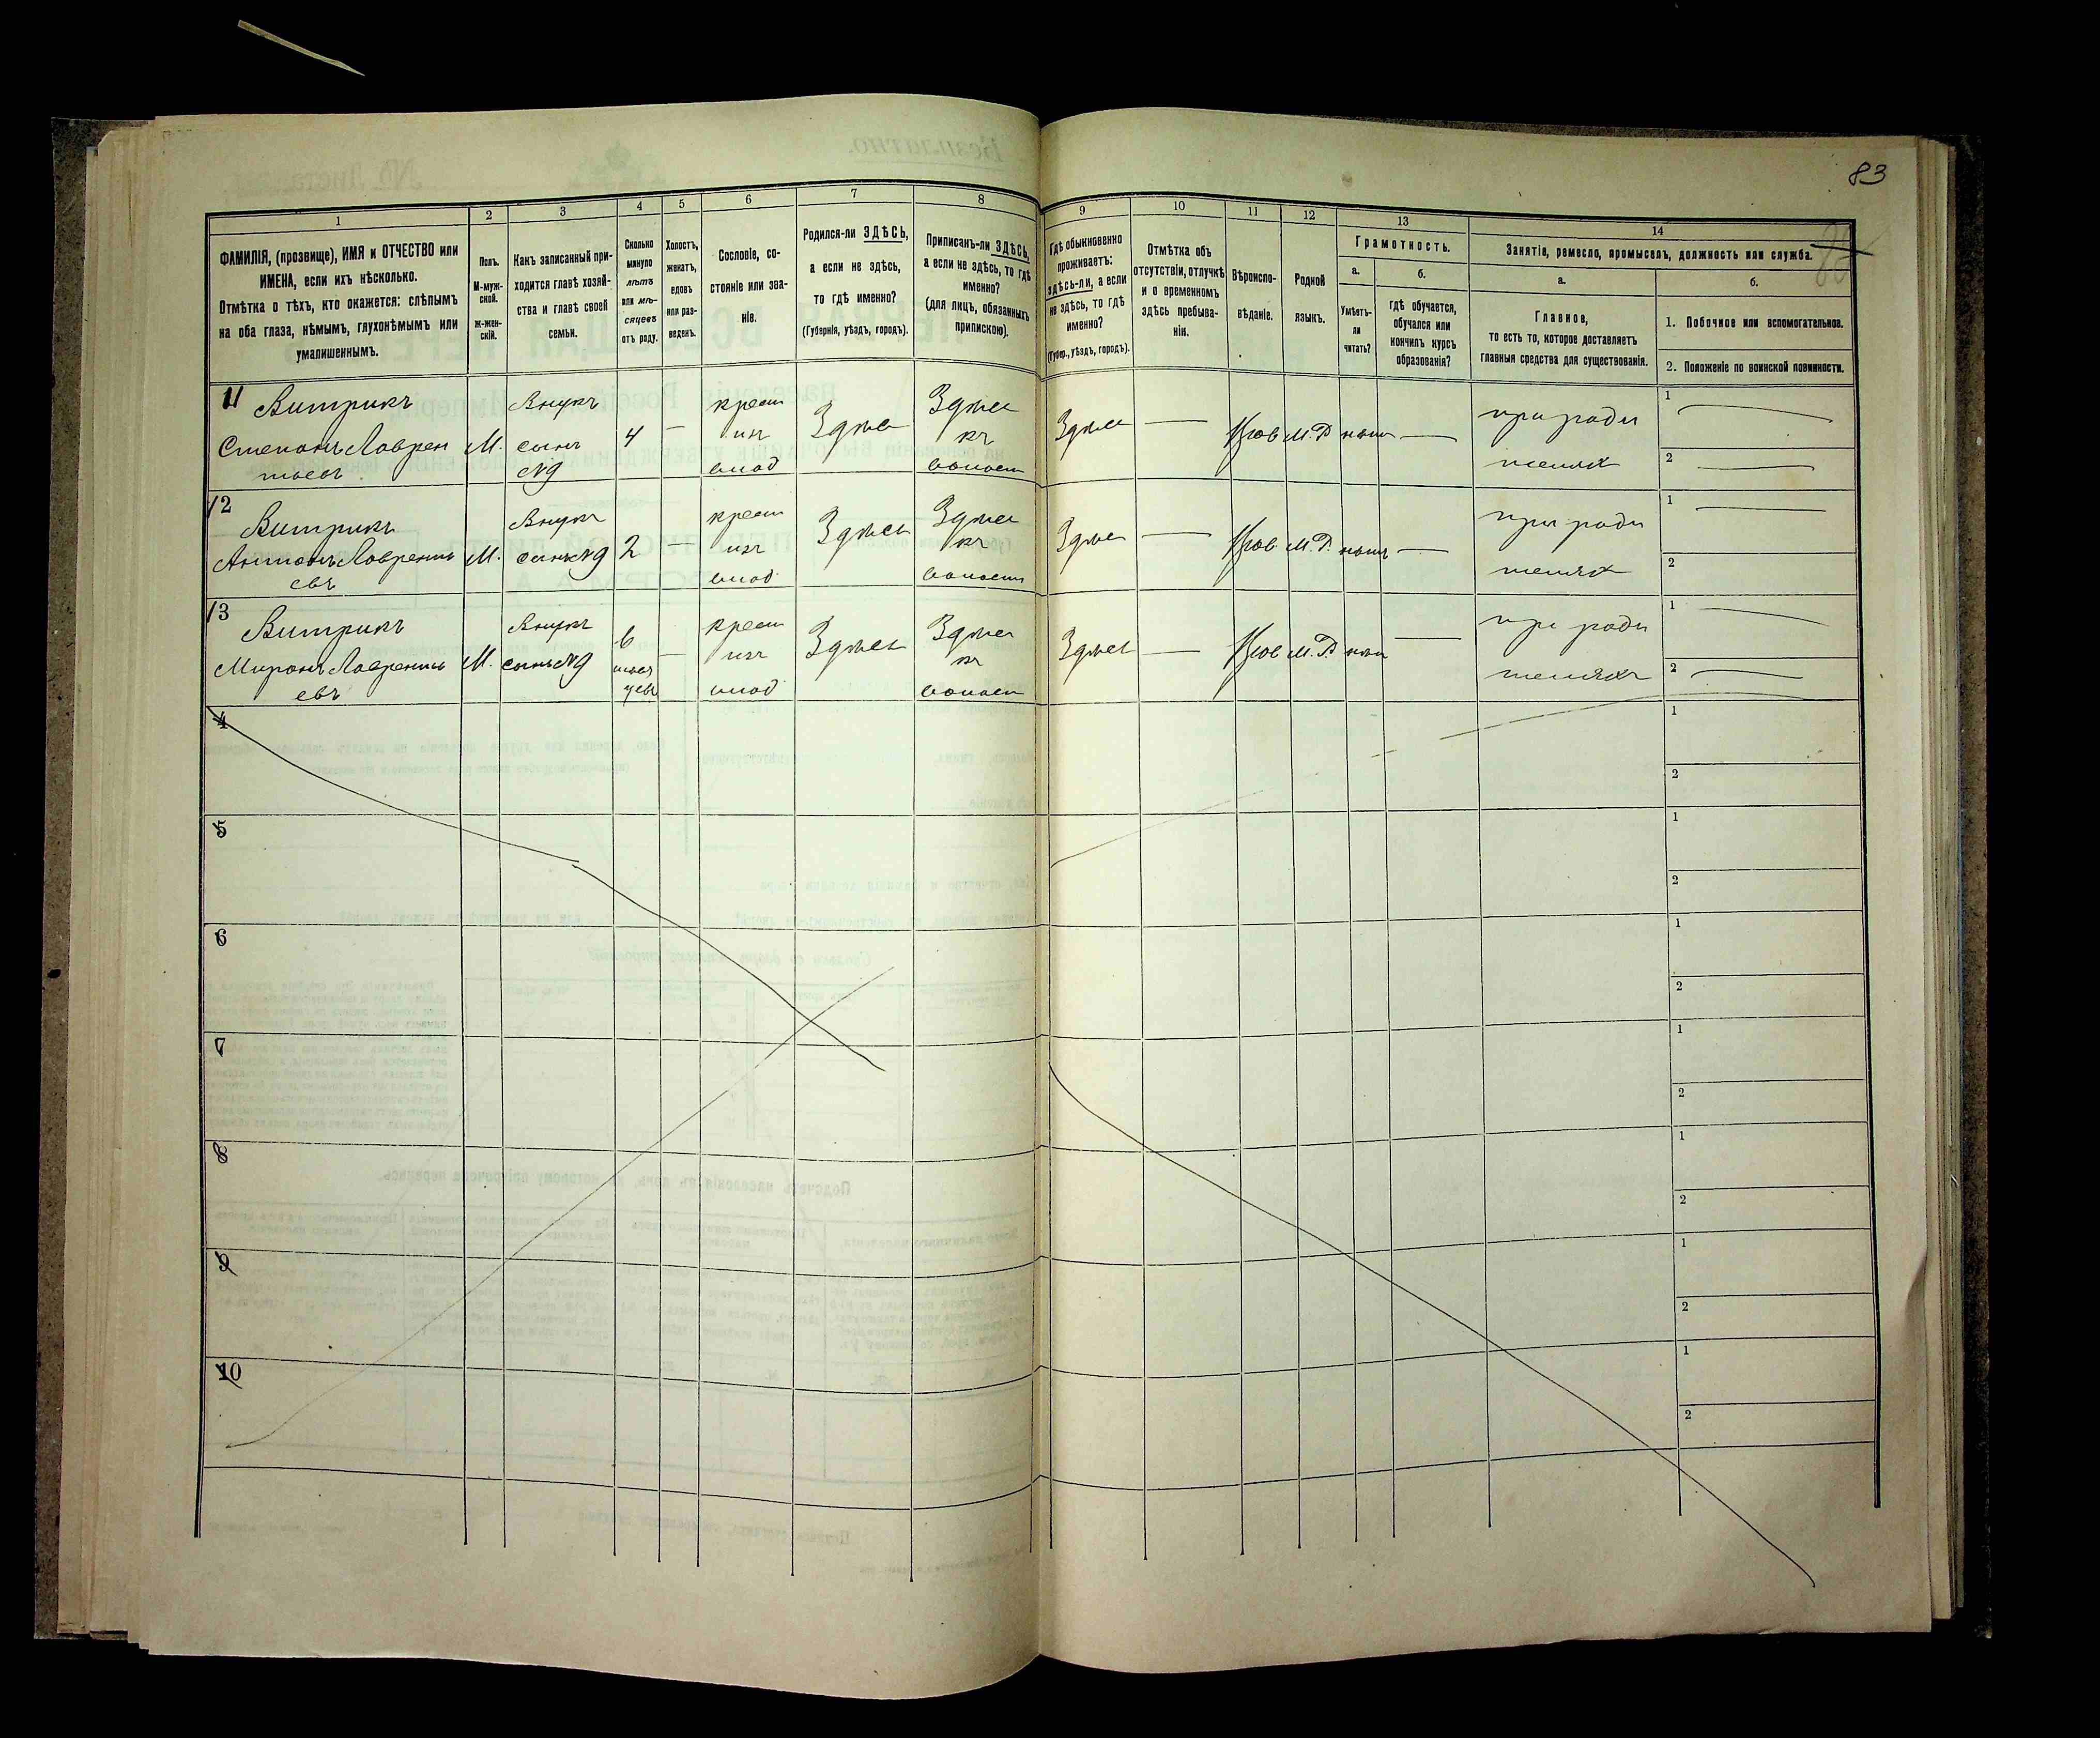 83
1
2
3
4
5
6
7
8
9
10
11
12
13
14
ФАМИЛІЯ, (прозвище), ИМЯ и ОТЧЕСТВО или
ИМЕНА, если ихъ нѣсколько.
Отмѣтка о тѣхъ, кто окажется: слѣпымъ
на оба глаза, нѣмымъ, глухонѣмымъ или
умалишеннымъ.
Полъ.
М-муж-
ской.
ж-жен-
скій.
Какъ записанный при-
ходится главѣ хозяй-
ства и главѣ своей
семьи.
Сколько
минуло
лѣтъ
или мѣ-
сяцевъ
отъ роду.
Холостъ,
женатъ,
вдовъ
или раз-
веденъ.
Сословіе, со-
стояніе или зва-
ніе.
Родился-ли ЗДѢСЬ,
а если не здѣсь,
то гдѣ именно?
(Губернія, уѣздъ, городъ).
Приписанъ-ли ЗДѢСЬ,
а если не здѣсь, то гдѣ
именно?
(для лицъ, обязанныхъ
припискою).
Гдѣ обыкновенно
проживаетъ:
здѣсь-ли, а если
не здѣсь, то гдѣ
именно?
(Губер., уѣздъ, городъ).
Отмѣтка объ
отсутствіи, отлучкѣ
и о временномъ
здѣсь пребыва-
ніи.
Вѣроиспо-
вѣданіе.
Родной
языкъ.
Грамотность.
а.
Умѣетъ-
ли
читать?
б.
Гдѣ обучается,
обучался или
кончилъ курсъ
образованія?
Занятіе, ремесло, промыселъ, должность или служба.
а.
Главное,
то есть то, которое доставляетъ
главныя средства для существованія.
б.
1. Побочное или вспомогательное.
2. Положеніе по воинской повинности.
11
Витрикъ
Степанъ Лаврен
тьевъ
М.
Внукъ
сынъ
№9
4
—
крест
изъ
Здѣсь
Здѣсь
къ
волост
Здѣсь
—
Прав
М.Р.
нѣтъ
—
при роди
теляхъ
1 —
2 —
12
Витрикъ
Антонъ Лавренть
евъ
М.
Внукъ
сынъ №9
2
—
крест
изъ
Здѣсь
Здѣсь
къ
волост
Здѣсь
—
Прав.
М.Р.
нѣтъ
—
при роди
теляхъ
1 —
2
13
Витрикъ
Миронъ Лавренть
евъ
М.
Внукъ
сынъ №9
6
мѣся
цевъ
—
крест
изъ
Здѣсь
Здѣсь
къ
волост
Здѣсь
—
Прав
М.Р.
нѣтъ
—
при роди
теляхъ
1 —
2 —
4
1
2
5
1
2
6
1
2
7
1
2
8
1
2
9
1
2
10
1
2